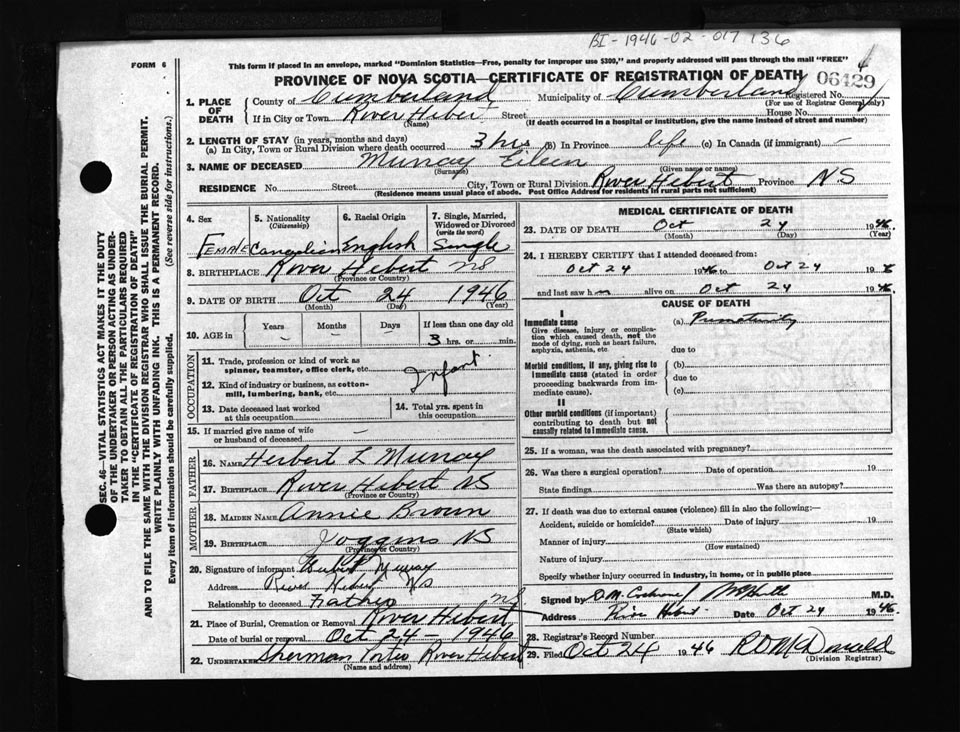 BI-1946-02-017136
FORM 6
This form if placed in an envelope, marked "Dominion Statistics—Free, penalty for improper use $300," and properly addressed will pass through the mail "FREE"
PROVINCE OF NOVA SCOTIA—CERTIFICATE OF REGISTRATION OF DEATH
06429
1. PLACE OF DEATH
County of Cumberland Municipality of Cumberland Registered No.
(For use of Registrar General only)
If in City or Town River Hebert Street House No.
(Name) (If death occurred in a hospital or institution, give the name instead of street and number)
2. LENGTH OF STAY (in years, months and days)
(a) In City, Town or Rural Division where death occurred 3 hrs (b) In Province life (c) In Canada (if immigrant) -
3. NAME OF DECEASED Murray Eileen
(Surname) (Given name or names)
RESIDENCE No. Street City, Town or Rural Division River Hebert Province NS
(Residence means usual place of abode. Post Office Address for residents in rural parts not sufficient)
4. Sex Female
5. Nationality (Citizenship) Canadian
6. Racial Origin English
7. Single, Married, Widowed or Divorced (write the word) Single
8. BIRTHPLACE River Hebert NS
(Province or Country)
9. DATE OF BIRTH Oct 24 1946
(Month) (Day) (Year)
10. AGE in Years - Months - Days - If less than one day old 3 hrs. or min.
OCCUPATION
11. Trade, profession or kind of work as spinner, teamster, office clerk, etc. Infant
12. Kind of industry or business, as cotton-mill, lumbering, bank, etc.
13. Date deceased last worked at this occupation
14. Total yrs. spent in this occupation
15. If married give name of wife or husband of deceased —
FATHER
16. NAME Herbert L Murray
17. BIRTHPLACE River Hebert NS
(Province or Country)
MOTHER
18. MAIDEN NAME Annie Brown
19. BIRTHPLACE Joggins NS
(Province or Country)
20. Signature of informant Murray
Address River Hebert NS
Relationship to deceased Father
21. Place of Burial, Cremation or Removal River Hebert NS
Date of burial or removal Oct 24 - 1946
22. UNDERTAKER Sherman Porter River Hebert
(Name and address)
MEDICAL CERTIFICATE OF DEATH
23. DATE OF DEATH Oct 24 1946
(Month) (Day) (Year)
24. I HEREBY CERTIFY that I attended deceased from:
Oct 24 1946 to Oct 24 1946
and last saw h alive on Oct 24 1946
CAUSE OF DEATH
I
Immediate cause (a) Prematurity
Give disease, injury or complication which caused death, not the mode of dying, such as heart failure, asphyxia, asthenia, etc.
due to
Morbid conditions, if any, giving rise to immediate cause (stated in order proceeding backwards from immediate cause).
(b)
due to
(c)
II
Other morbid conditions (if important) contributing to death but not causally related to immediate cause.
25. If a woman, was the death associated with pregnancy?
26. Was there a surgical operation? Date of operation 19
State findings Was there an autopsy?
27. If death was due to external causes (violence) fill in also the following:—
Accident, suicide or homicide? Date of injury 19
(State which)
Manner of injury
(How sustained)
Nature of injury
Specify whether injury occurred in industry, in home, or in public place
Signed by M.D.
Address River Hebert Date Oct 24 1946.
28. Registrar's Record Number
29. Filed Oct 24 1946 R D McDonald
(Division Registrar)
SEC. 46—VITAL STATISTICS ACT MAKES IT THE DUTY
OF THE UNDERTAKER OR PERSON ACTING AS UNDERTAKER
TO OBTAIN ALL THE PARTICULARS REQUIRED
IN THE "CERTIFICATE OF REGISTRATION OF DEATH"
AND TO FILE THE SAME WITH THE DIVISION REGISTRAR WHO SHALL ISSUE THE BURIAL PERMIT.
WRITE PLAINLY WITH UNFADING INK. THIS IS A PERMANENT RECORD.
Every item of information should be carefully supplied. (See reverse side for instructions.)